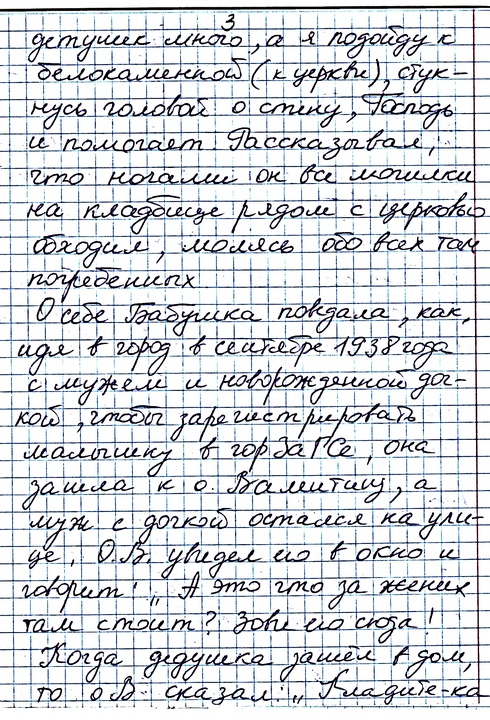 3
детушек много, а я подойду к
белокаменной (к церкви), стук-
нусь головой о стену, Господь
и помогает. Рассказывал,
что ногами он все могилки
на кладбище рядом с церковью
обходил, молясь обо всех там
погребенных
О себе Бабушка поведала, как,
идя в город в сентябре 1938 года
с мужем и новорожденной доч-
кой, чтобы зарегистрировать
малышку в горЗАГСе, она
зашла к о. Валентину, а
муж с дочкой остался на ули-
це. О.В. увидел его в окно и
говорит: „А это что за жених
там стоит? Зови его сюда!
Когда дедушка зашёл в дом,
то о.В. сказал: „Кладите-ка